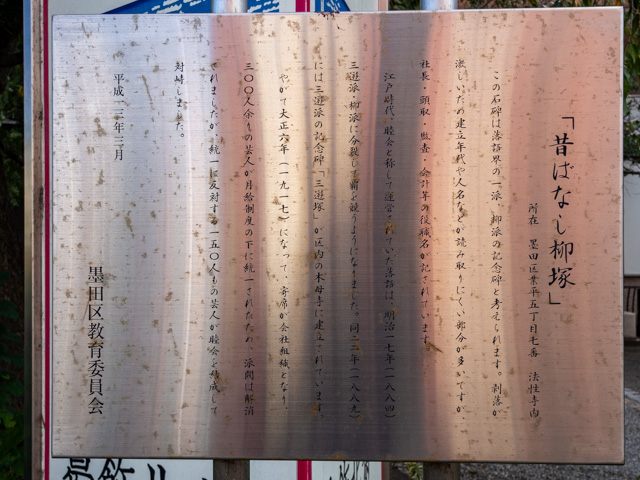 「昔ばなし柳塚」
所在 墨田区業平五丁目七番 法性寺内
この石碑は落語界の一派、柳派の記念碑と考えられます。剥落が
激しいため建立年代や人名などが読み取りにくい部分が多いですが、
社長・頭取・監査・会計等の役職名が記されています。
江戸時代、睦会と称して運営されていた落語は、明治一七年(一八八四)
三遊派・柳派に分裂して商を競うようになりました。同二二年(一八八九)
には三遊派の記念碑「三遊塚」が区内の木母寺に建立されています。
やがて大正六年(一九一七)になって、寄席が会社組織となり、
三〇〇人余りの芸人が月給制度の下に統一されたため、派閥は解消
されましたが、統一に反対する一五〇人もの芸人が睦会を結成して
対峙しました。
平成一三年三月
墨田区教育委員会